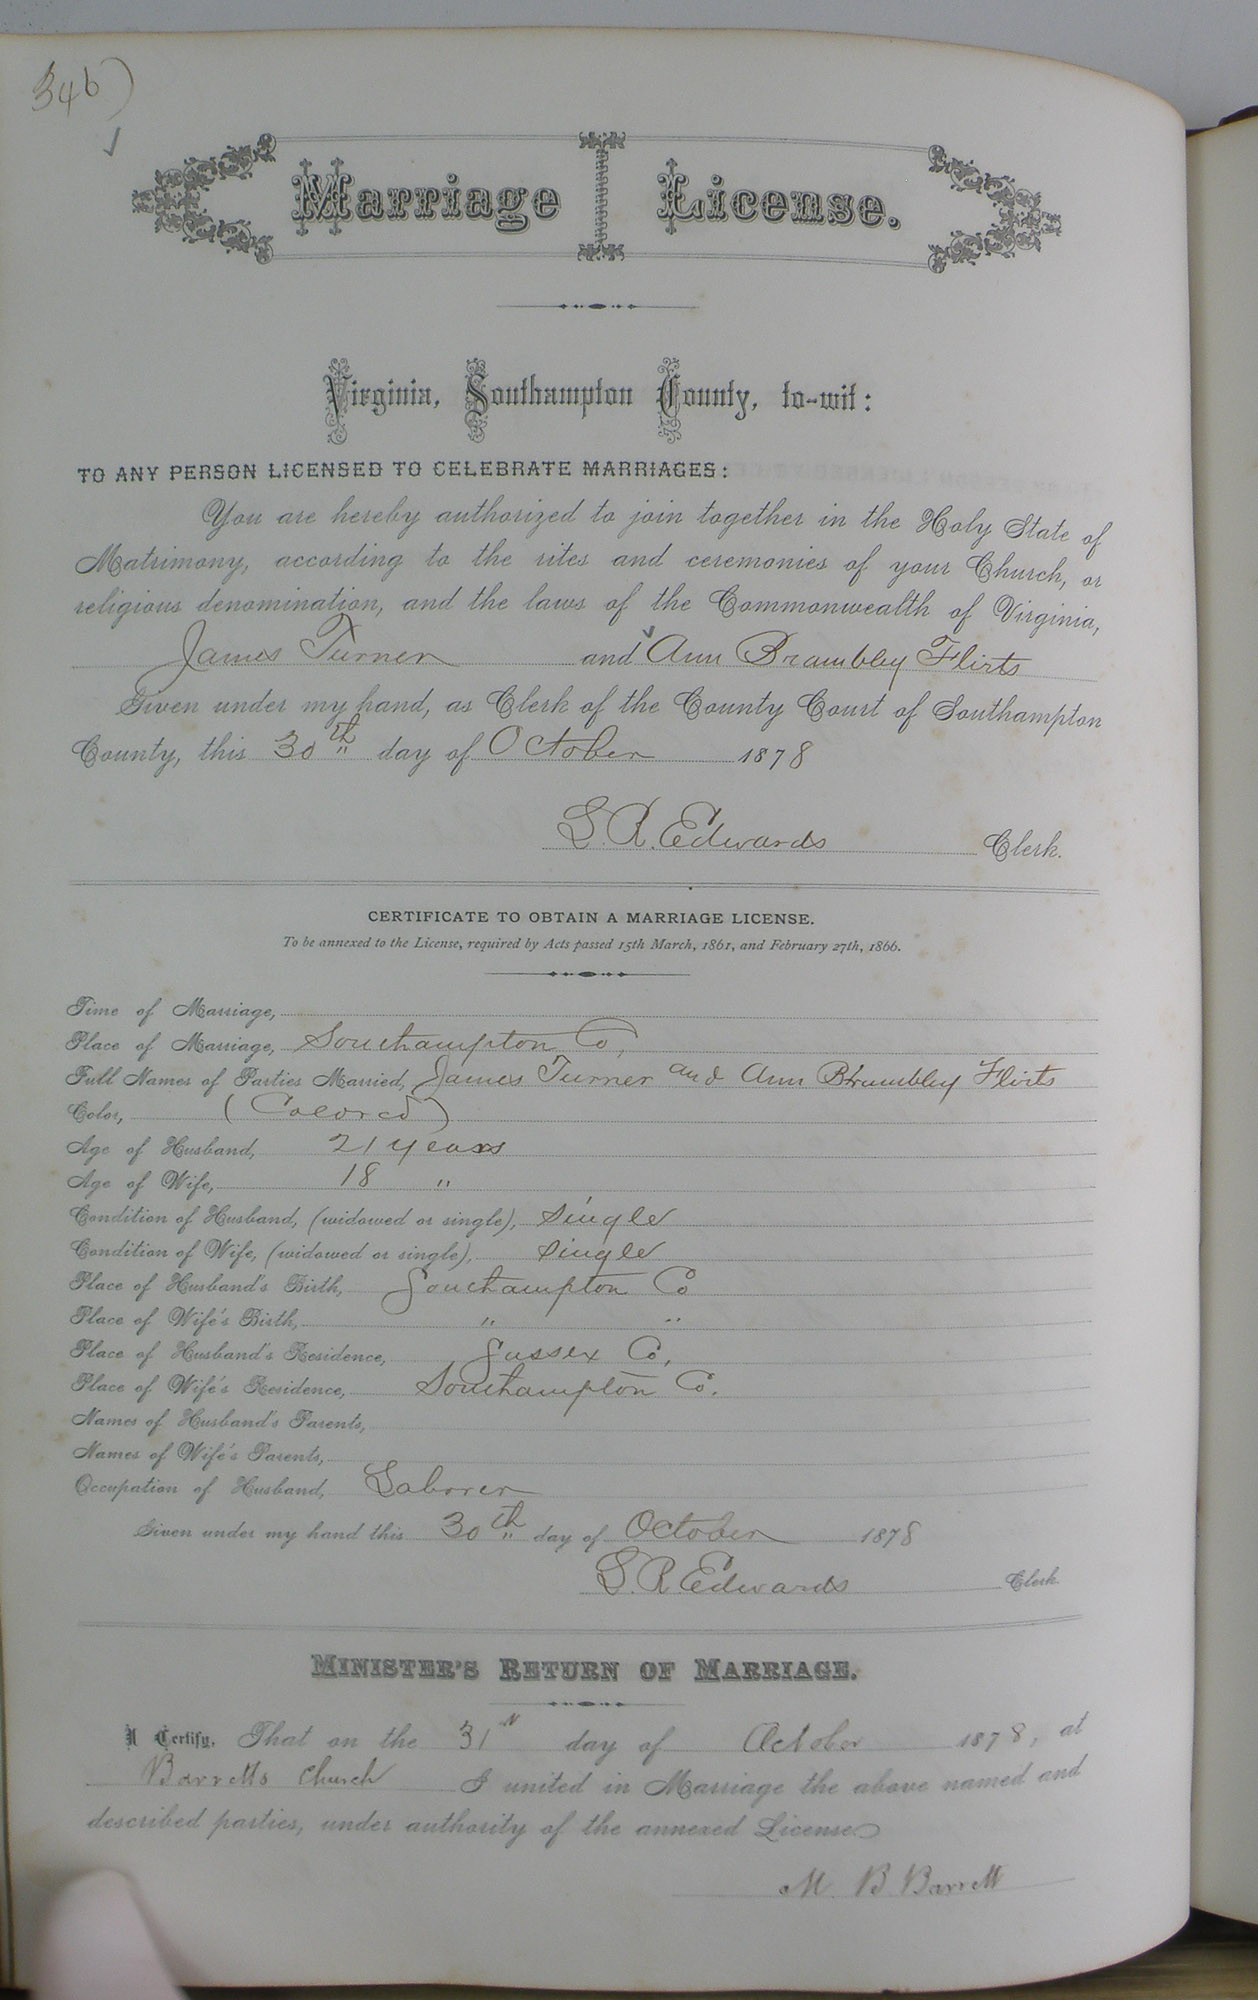 346)
Marriage License.
Virginia, Southampton County, to-wit:
TO ANY PERSON LICENSED TO CELEBRATE MARRIAGES:
You are hereby authorized to join together in the Holy State of
Matrimony, according to the rites and ceremonies of your Church, or
religious denomination, and the laws of the Commonwealth of Virginia,
James Turner and Ann Brambley Flirts
Given under my hand, as Clerk of the County Court of Southampton
County, this 30th day of October 1878
L. R. Edwards Clerk.
CERTIFICATE TO OBTAIN A MARRIAGE LICENSE.
To be annexed to the License, required by Acts passed 15th March, 1861, and February 27th, 1866.
Time of Marriage,
Place of Marriage, Southampton Co,
Full Names of Parties Married, James Turner and Ann Brambley Flirts
Color, (Colored)
Age of Husband, 21 years
Age of Wife, 18 "
Condition of Husband, (widowed or single), single
Condition of Wife, (widowed or single), single
Place of Husband's Birth, Southampton Co
Place of Wife's Birth, " "
Place of Husband's Residence, Sussex Co,
Place of Wife's Residence, Southampton Co.
Names of Husband's Parents,
Names of Wife's Parents,
Occupation of Husband, Laborer
Given under my hand this 30th day of October 1878
L. R. Edwards Clerk
MINISTER'S RETURN OF MARRIAGE.
I Certify, That on the 31 day of October 1878, at
Barretts Church I united in Marriage the above named and
described parties, under authority of the annexed License
M. B. Barrett